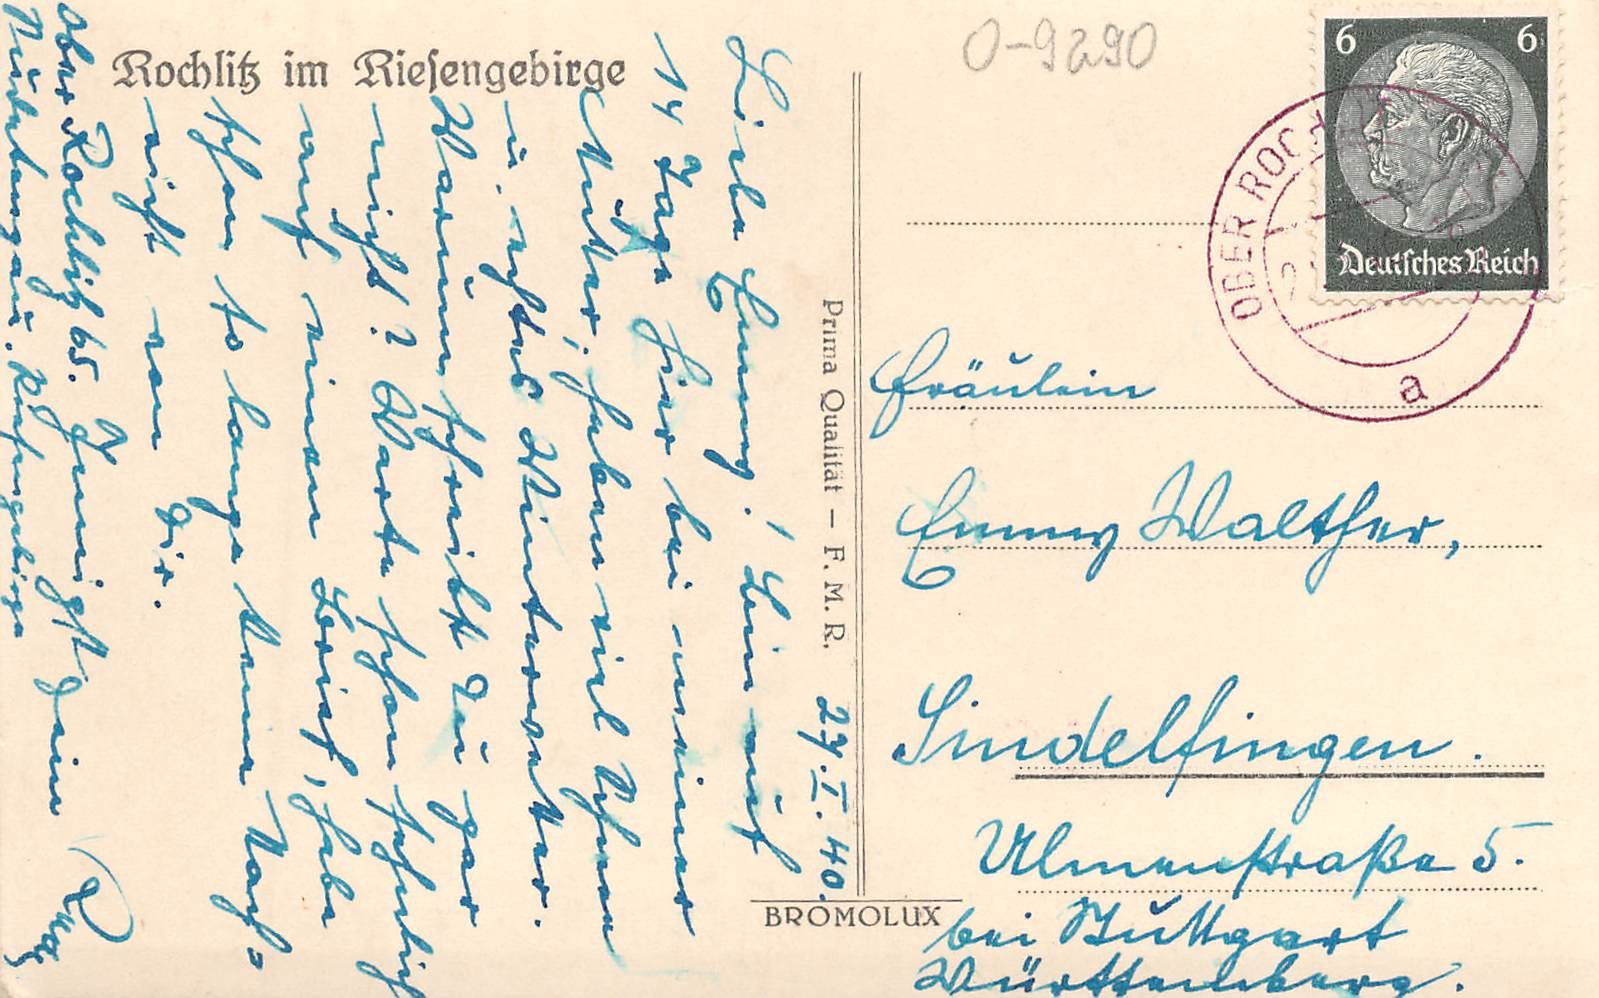 Rochlitz im Riesengebirge
O-9290
6 6
Deutsches Reich
OBER ROCHLITZ
a
Prima Qualität – F. M. R.
BROMOLUX
27. I. 40.
Liebe Emmy! Bin auf
14 Tage hier bei meiner
Mutter, haben viel Schnee
u. echtes Winterwetter.
Warum schreibst Du gar
nicht? Warte schon sehnlich
auf einen Brief, habe
schon so lange keine Nach=
richt von Dir.
Ober Rochlitz 65. Innigst Deine
Sudetengau. Riesengebirge
Fräulein
Emmy Walther,
Sindelfingen.
Ulmenstraße 5.
bei Stuttgart
Württemberg.